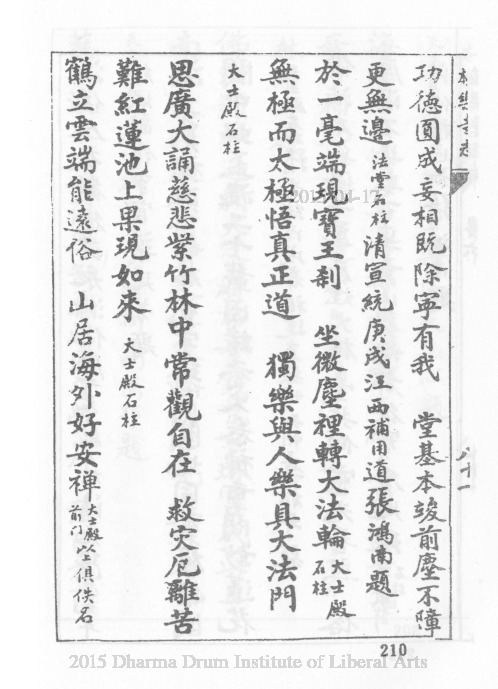 極樂寺志
八十一
功德圓成妄相既除寧有我　堂基本竣前塵不障
更無邊 法堂石柱 清宣統庚戌江西補用道張鴻南題
於一毫端現寶王剎　坐微塵裡轉大法輪 大士殿石柱
無極而太極悟真正道　獨樂與人樂具大法門
大士殿石柱
恩廣大誦慈悲紫竹林中常觀自在　救灾厄離苦
難紅蓮池上果現如來 大士殿石柱
鶴立雲端能遠俗　山居海外好安禅 大士殿前门 以上俱佚名
210
2015 Dharma Drum Institute of Liberal Arts